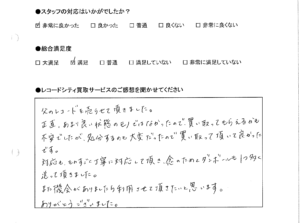 ●スタッフの対応はいかがでしたか?
☑ 非常に良かった □ 良かった □ 普通 □ 良くない □ 非常に良くない
●総合満足度
□ 大満足 ☑ 満足 □ 普通 □ 満足していない □ 非常に満足していない
●レコードシティ買取サービスのご感想を聞かせてください
父のレコードを売らせて頂きました。
正直、あまり良い状態のものではなかったので、買い取ってもらえるかも
不安でしたが、処分するのも大変だったので買い取って頂いて良かった
です。
対応も、ものすごく丁寧に対応して頂き、念のためにダンボールも1つ多く
送って頂きました。
また機会がありましたら利用させて頂きたいと思います。
ありがとうございました。